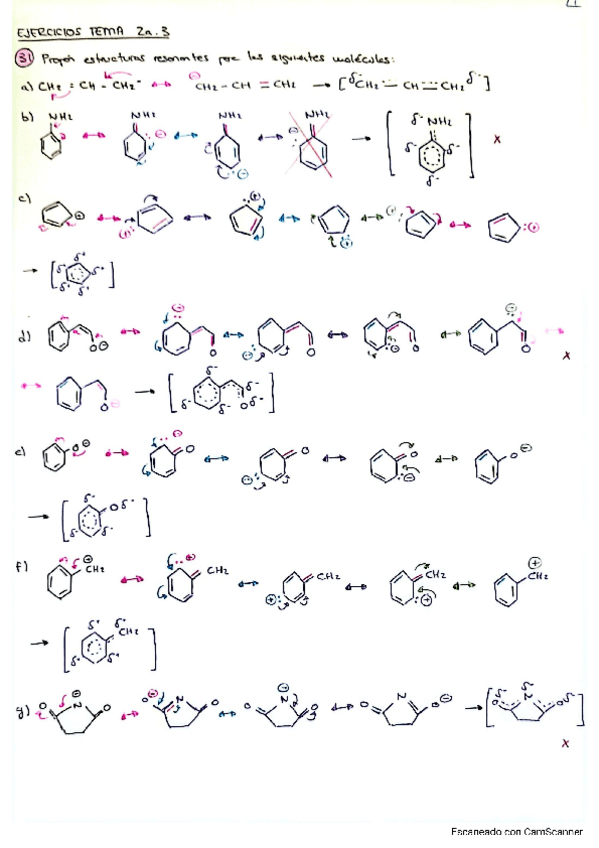 EJERCICIOS TEMA 2a.3
31 Propón estructuras resonantes para las siguientes moléculas:
a) CH2 = CH - CH2⁻ ↔ CH2 - CH = CH2 → [δ⁻CH2 CH CH2 δ⁻]
b) NH2 NH2 NH2 NH2 δ⁻ NH2 δ⁻ δ⁻ δ⁻ x
c)
δ⁺ δ⁺ δ⁺ δ⁺ δ⁺
d) O⊖ O O O O x
O⊖ δ⁻ δ⁻ δ⁻ δ⁻ Oδ⁻
e) O⊖ O O O O⊖
δ⁻ Oδ⁻ δ⁻ δ⁻
f) ⊕CH2 CH2 CH2 CH2 ⊕CH2
δ⁺ δ⁺ CH2 δ⁺ δ⁺
g) O N O O N O O N O O N O⊖ δ⁻ O N O δ⁻ x
Escaneado con CamScanner